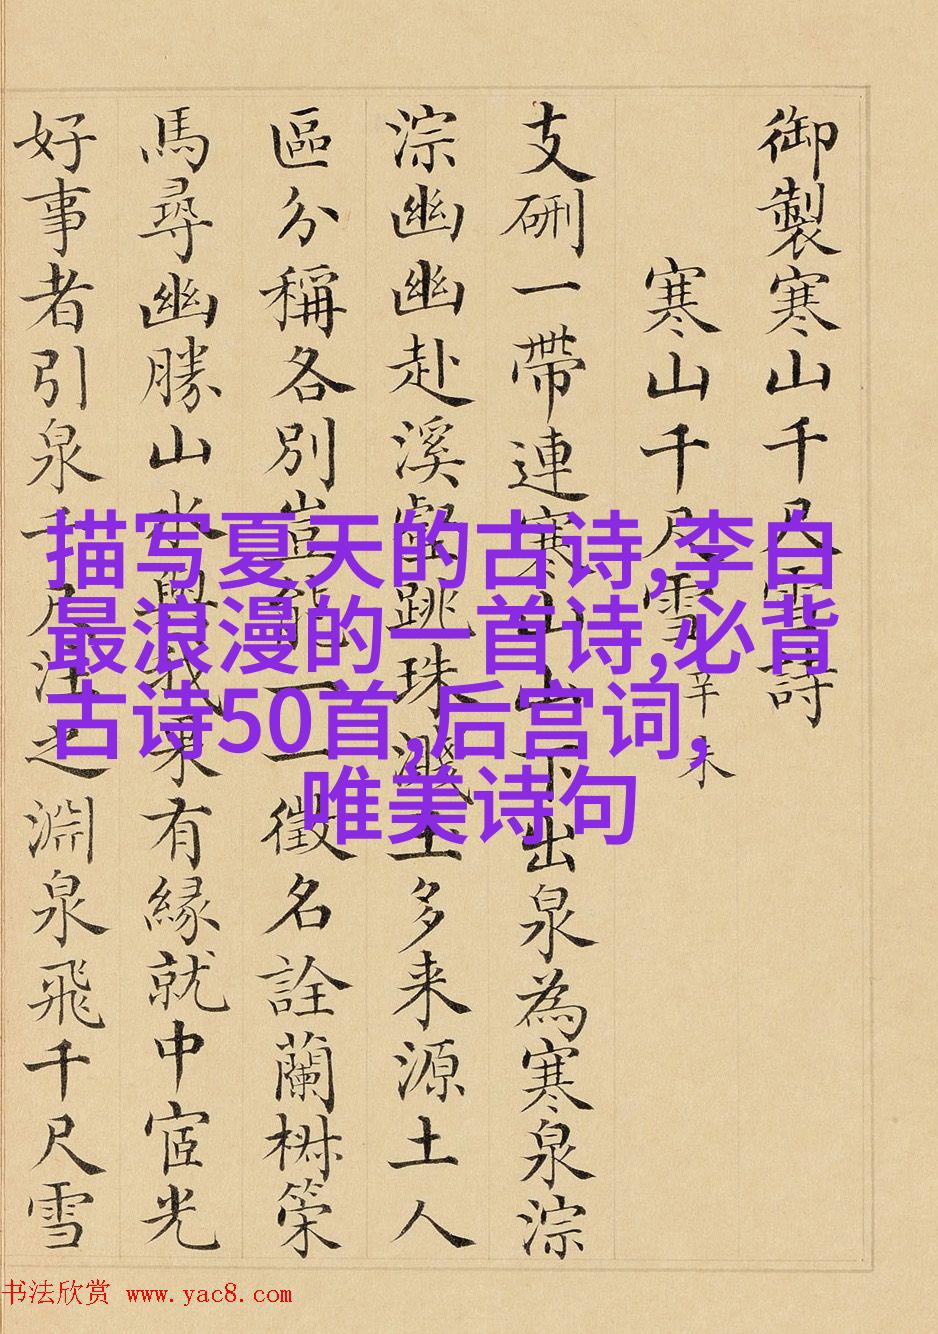 御製寒山千尺雪詩
寒山千尺雪 辛未
支硎一帶連寒山山下出泉為寒泉淙
淙幽幽赴溪壑跳珠濺玉多来源土人
區分稱各別豈能一一徵名詮蘭椒筞
馬尋幽勝山水與我果有緣就中宧光
好事者引泉千尺注之淵泉飛千尺雪
描写夏天的古诗,李白
最浪漫的一首诗,必背
古诗50首,后宫词,
唯美诗句
书法欣赏 www.yac8.com